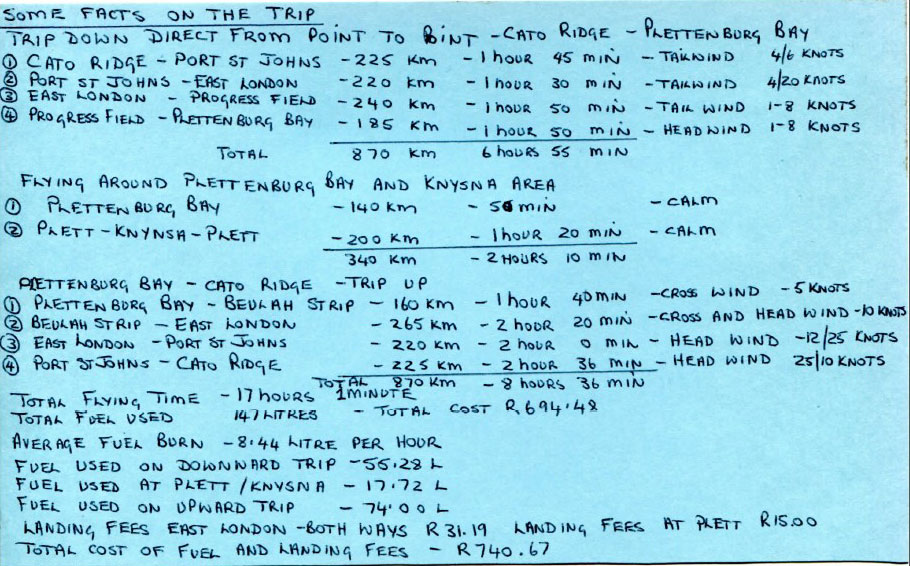 SOME FACTS ON THE TRIP
TRIP DOWN DIRECT FROM POINT TO POINT - CATO RIDGE - PLETTENBURG BAY
① CATO RIDGE - PORT ST JOHNS - 225 KM - 1 HOUR 45 MIN - TAILWIND 4/6 KNOTS
② PORT ST JOHNS - EAST LONDON - 220 KM - 1 HOUR 30 MIN - TAILWIND 4/20 KNOTS
③ EAST LONDON - PROGRESS FIELD - 240 KM - 1 HOUR 50 MIN - TAIL WIND 1-8 KNOTS
④ PROGRESS FIELD - PLETTENBURG BAY - 185 KM - 1 HOUR 50 MIN - HEADWIND 1-8 KNOTS
TOTAL 870 KM 6 HOURS 55 MIN
FLYING AROUND PLETTENBURG BAY AND KNYSNA AREA
① PLETTENBURG BAY - 140 KM - 50 MIN - CALM
② PLETT - KNYNSA - PLETT - 200 KM - 1 HOUR 20 MIN - CALM
340 KM - 2 HOURS 10 MIN
PLETTENBURG BAY - CATO RIDGE - TRIP UP
① PLETTENBURG BAY - BEULAH STRIP - 160 KM - 1 HOUR 40 MIN - CROSS WIND - 5 KNOTS
② BEULAH STRIP - EAST LONDON - 265 KM - 2 HOUR 20 MIN - CROSS AND HEAD WIND - 10 KNOTS
③ EAST LONDON - PORT ST JOHNS - 220 KM - 2 HOUR 0 MIN - HEAD WIND - 12/25 KNOTS
④ PORT ST JOHNS - CATO RIDGE - 225 KM - 2 HOUR 36 MIN - HEAD WIND 25/10 KNOTS
TOTAL 870 KM - 8 HOURS 36 MIN
TOTAL FLYING TIME - 17 HOURS 1 MINUTE
TOTAL FUEL USED 147 LITRES - TOTAL COST R,694.48
AVERAGE FUEL BURN - 8.44 LITRE PER HOUR
FUEL USED ON DOWNWARD TRIP - 55.28 L
FUEL USED AT PLETT/KNYSNA - 17.72 L
FUEL USED ON UPWARD TRIP - 74.00 L
LANDING FEES EAST LONDON - BOTH WAYS R31.19 LANDING FEES AT PLETT R15.00
TOTAL COST OF FUEL AND LANDING FEES - R740.67